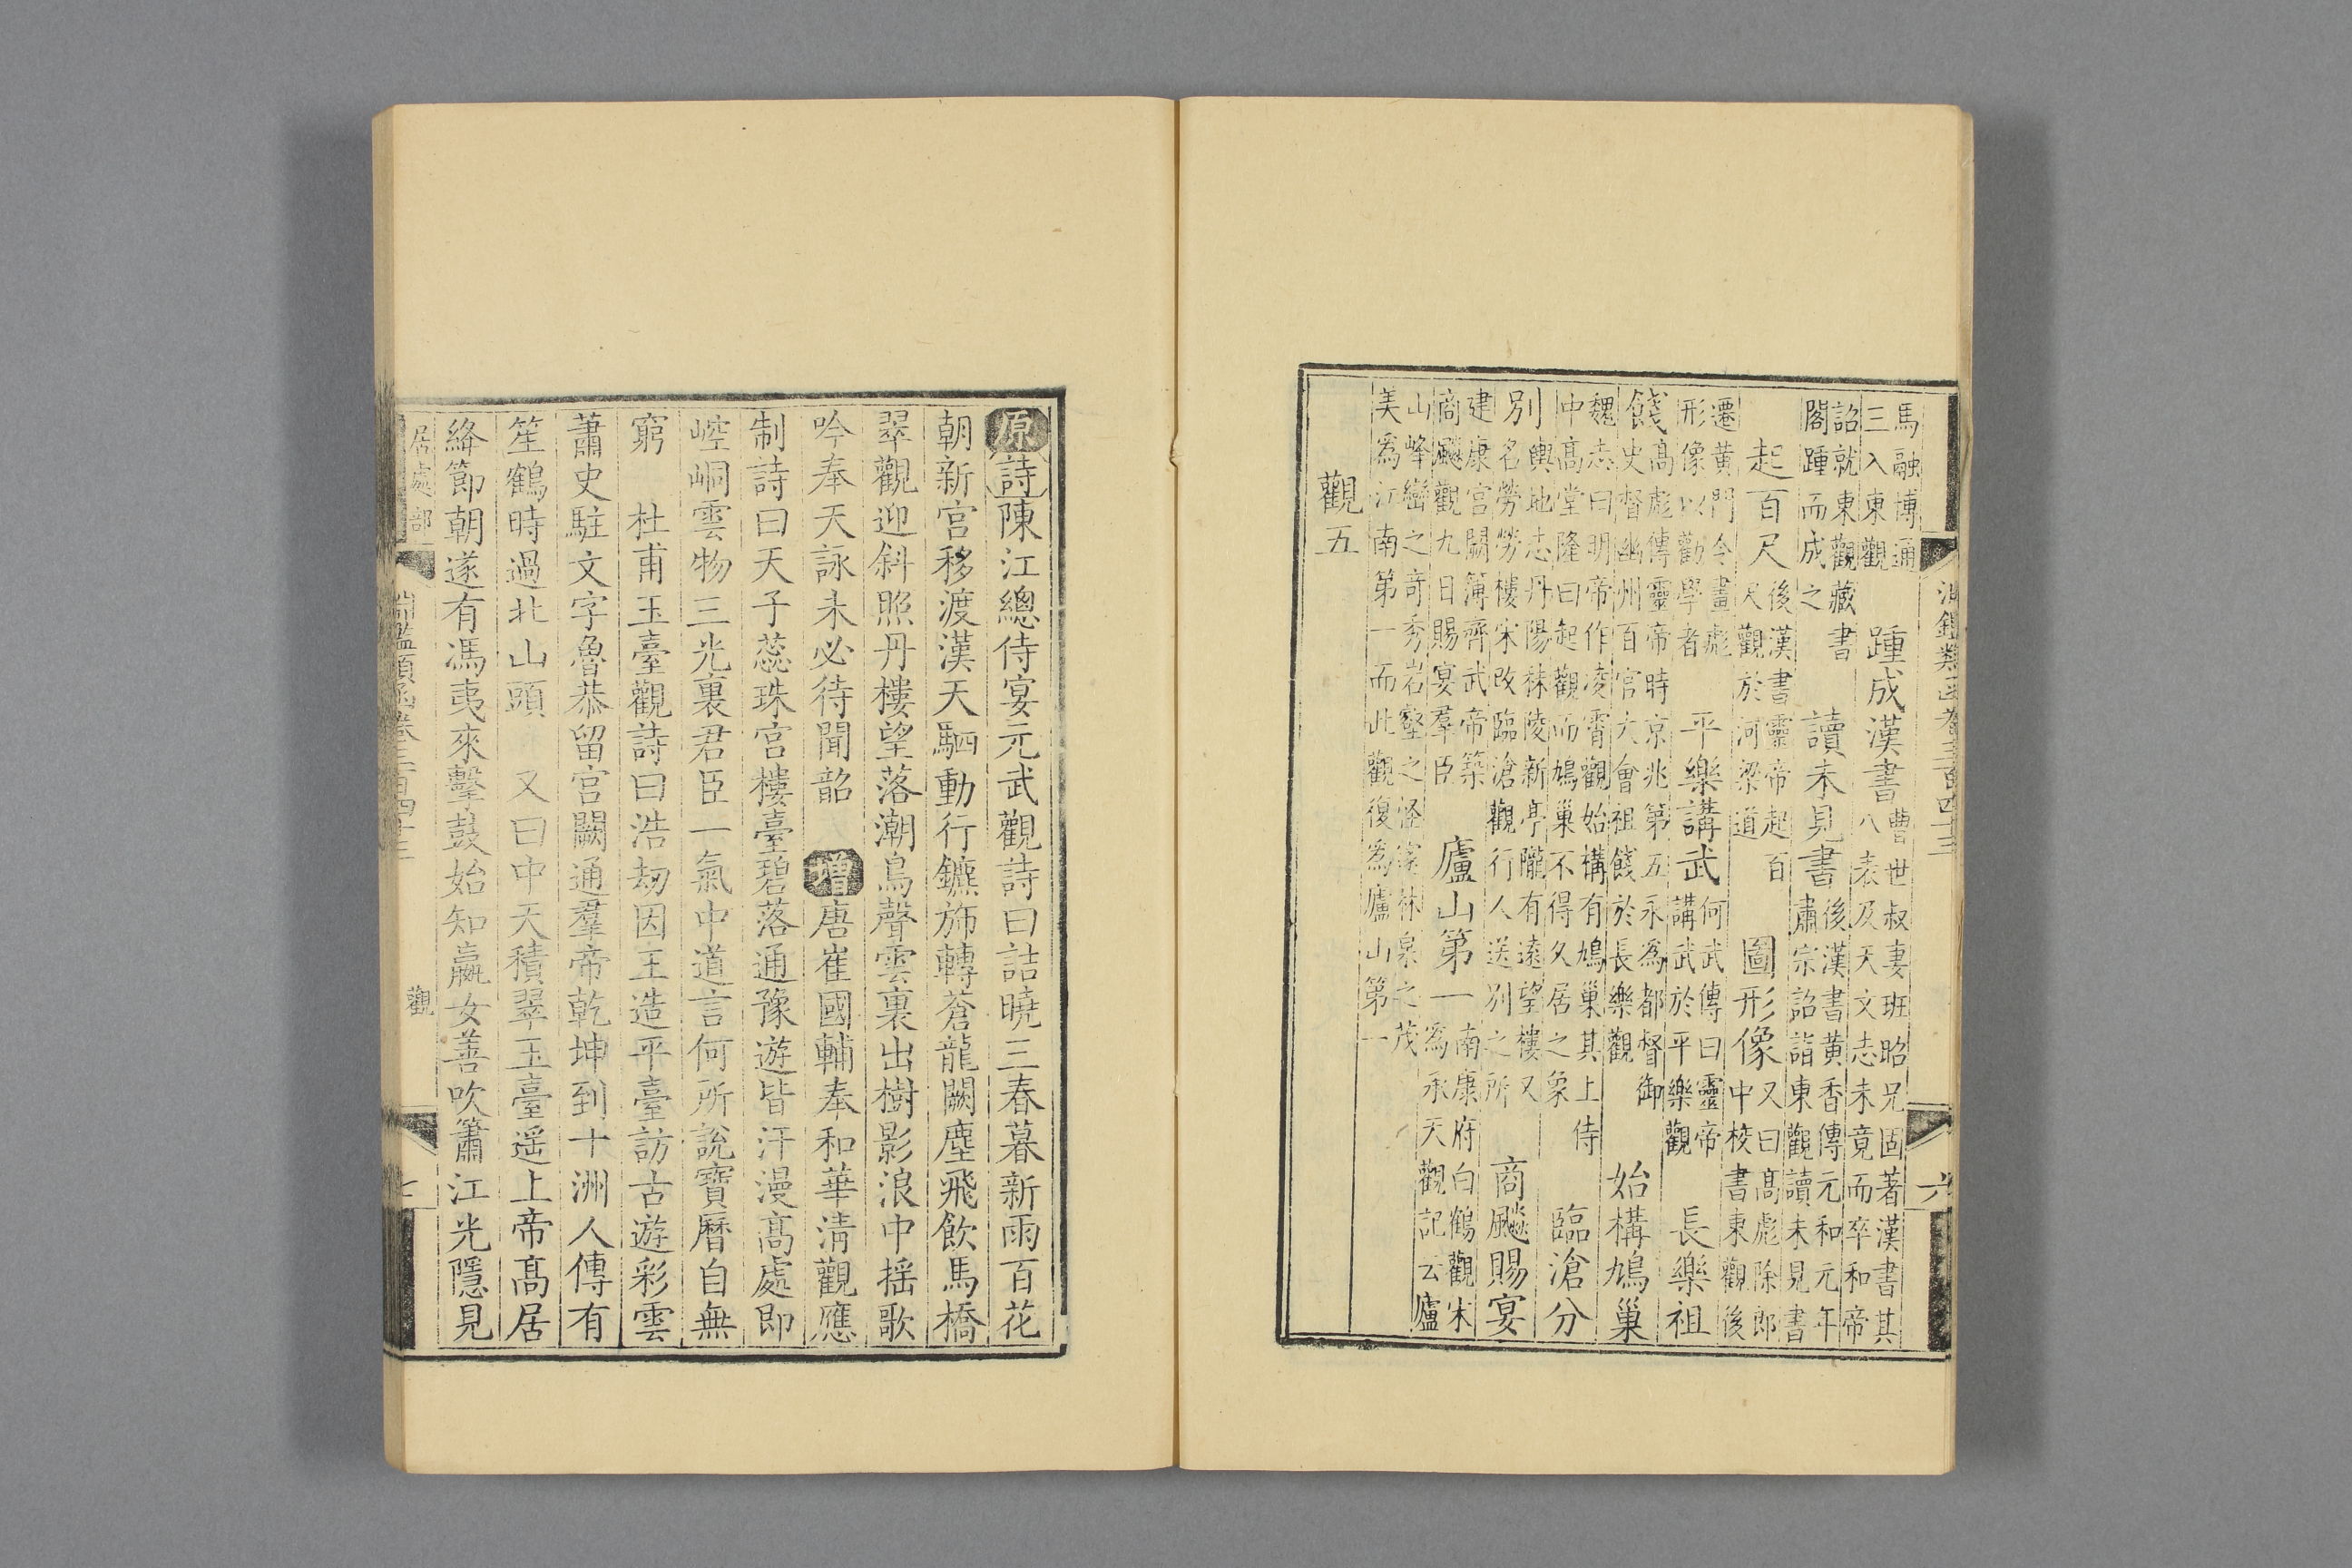 淵鑑類函卷三百四十三 六
馬融博通三入東觀 踵成漢書 曹世叔妻班昭兄固著漢書其八表及天文志未竟而卒和帝
詔就東觀藏書閣踵而成之 讀未見書 後漢書黄香傳元和元年肅宗詔詣東觀讀未見書
起百尺 後漢書靈帝起百尺觀於河梁道 圖形像 又曰髙彪除郎中校書東觀後
遷黄門令畫彪形像以勸學者 平樂講武 何武傳曰靈帝講武於平樂觀 長樂祖
餞 髙彪傳靈帝時京兆第五永為都督御史督幽州百官大會祖餞於長樂觀 始構鳩巢
魏志曰明帝作凌霄觀始構有鳩巢其上侍中髙堂隆曰起觀而鳩巢不得久居之象 臨滄分
别 輿地志丹陽秣陵新亭隴有遠望樓又名勞勞樓宋改臨滄觀行人送别之所 商飈賜宴
建康宫闕簿齊武帝築商飈觀九日賜宴羣臣 廬山第一 南康府白鶴觀宋為承天觀記云廬
山峰巒之竒秀岩壑之怪深林泉之茂美為江南第一而此觀復為廬山第一
觀五
原詩陳江總侍宴元武觀詩曰詰曉三春暮新雨百花
朝新宫移渡漢天駟動行鑣旆轉蒼龍闕塵飛飲馬橋
翠觀迎斜照丹樓望落潮鳥聲雲裏出樹影浪中摇歌
吟奉天詠未必待聞韶 增唐崔國輔奉和華清觀應
制詩曰天子蕊珠宫樓臺碧落通豫遊皆汗漫髙處即
崆峒雲物三光裏君臣一氣中道言何所說寶曆自無
窮 杜甫玉臺觀詩曰浩刼因王造平臺訪古遊彩雲
蕭史駐文字魯恭留宫闕通羣帝乾坤到十洲人傳有
笙鶴時過北山頭 又曰中天積翠玉臺遥上帝髙居
絳節朝遂有馮夷來擊鼓始知嬴女善吹簫江光隱見
居處部 淵鑑類函卷三百四十三 觀 七